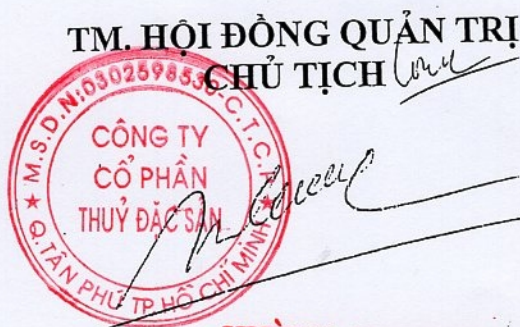 TM. HỘI ĐỒNG QUẢN TRỊ
CHỦ TỊCH
M.S.D.N:0302598536-C.T.C.P
CÔNG TY
CỔ PHẦN
THUỶ ĐẶC SẢN
Q.TÂN PHÚ TP.HỒ CHÍ MINH